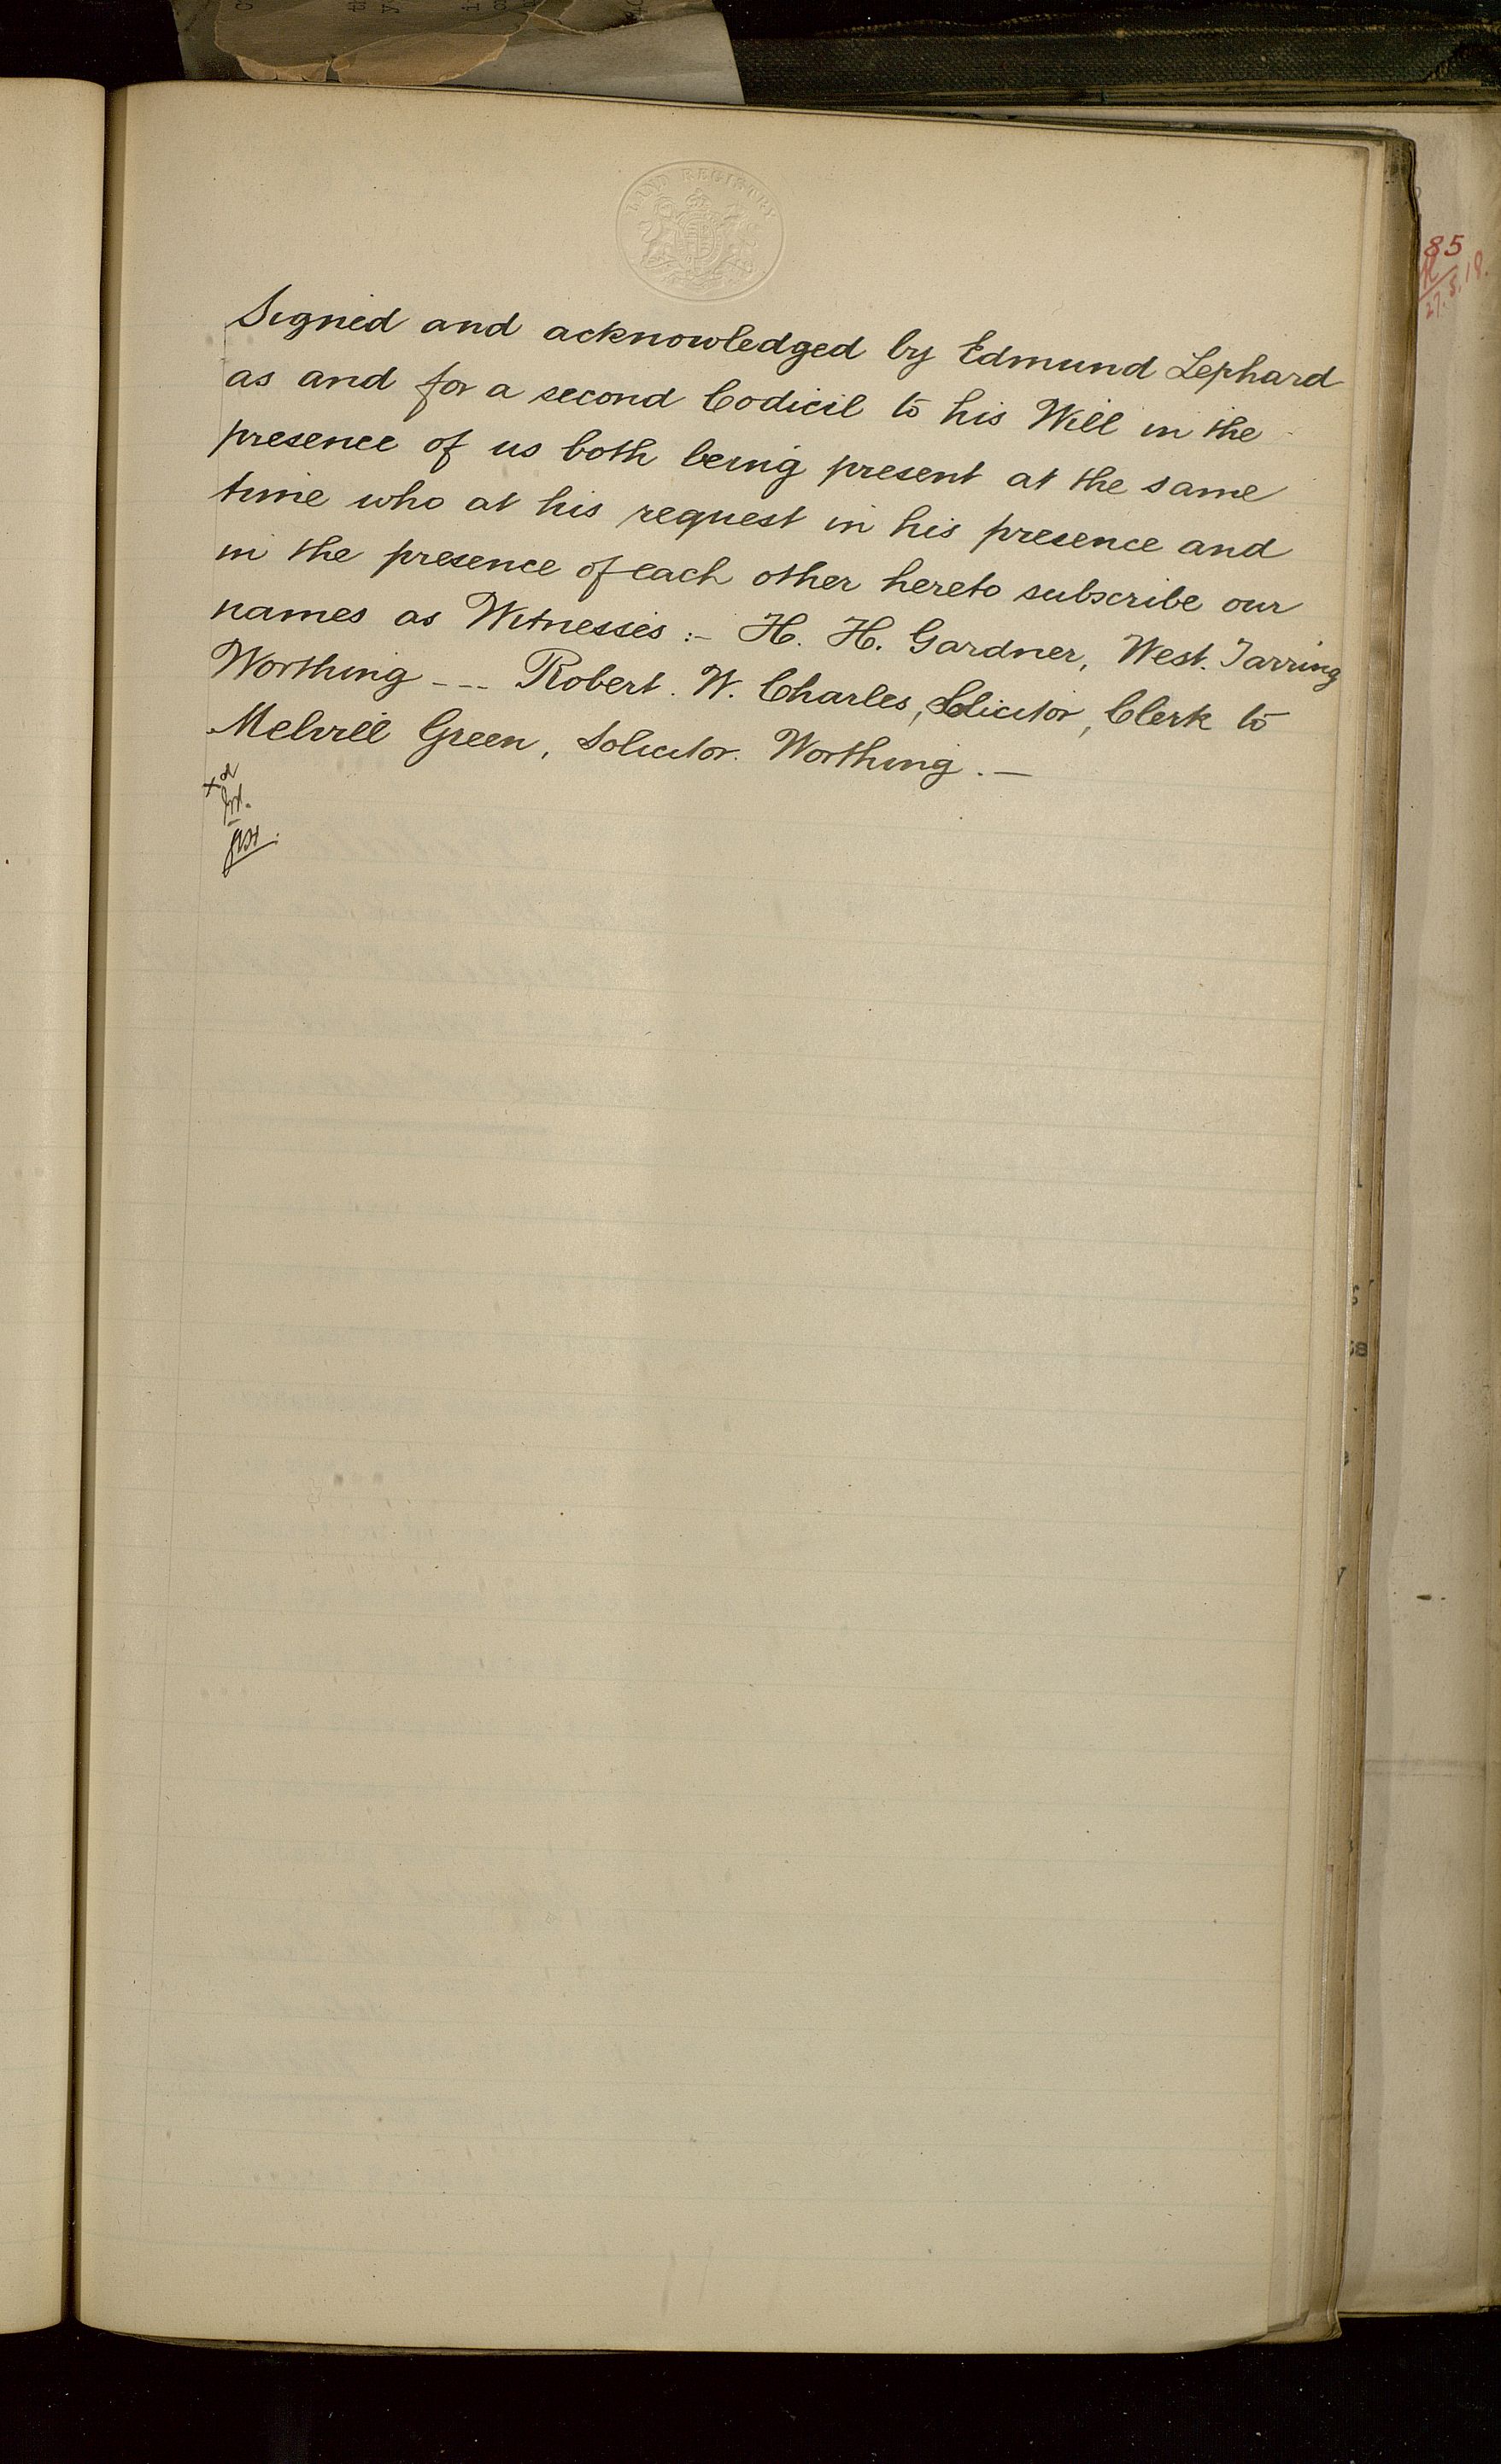 LAND REGISTRY
Signed and acknowledged by Edmund Lephard
as and for a second Codicil to his Will in the
presence of us both being present at the same
time who at his request in his presence and
in the presence of each other hereto subscribe our
names as Witnesses :- H. H. Gardner, West. Tarring
Worthing --- Robert. W. Charles, Solicitor, Clerk to
Melvill Green, Solicitor. Worthing. —
85
27.5.19.